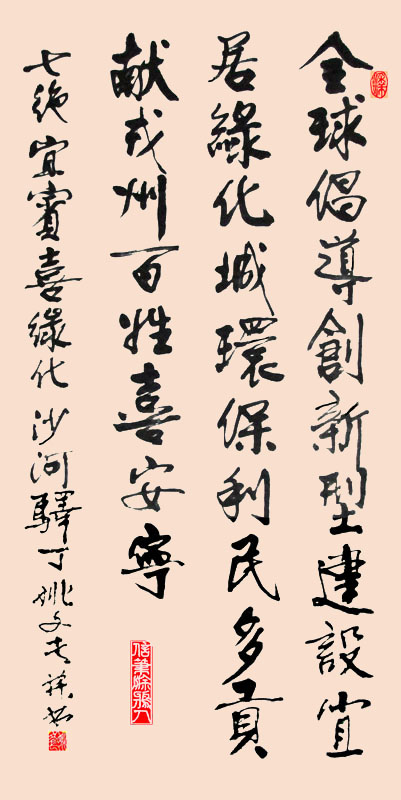 全球倡導創新型建設宜
居綠化城環保利民多貢
献戎州百姓喜安寧
七绝 宜賓喜綠化 沙河驛丁姚